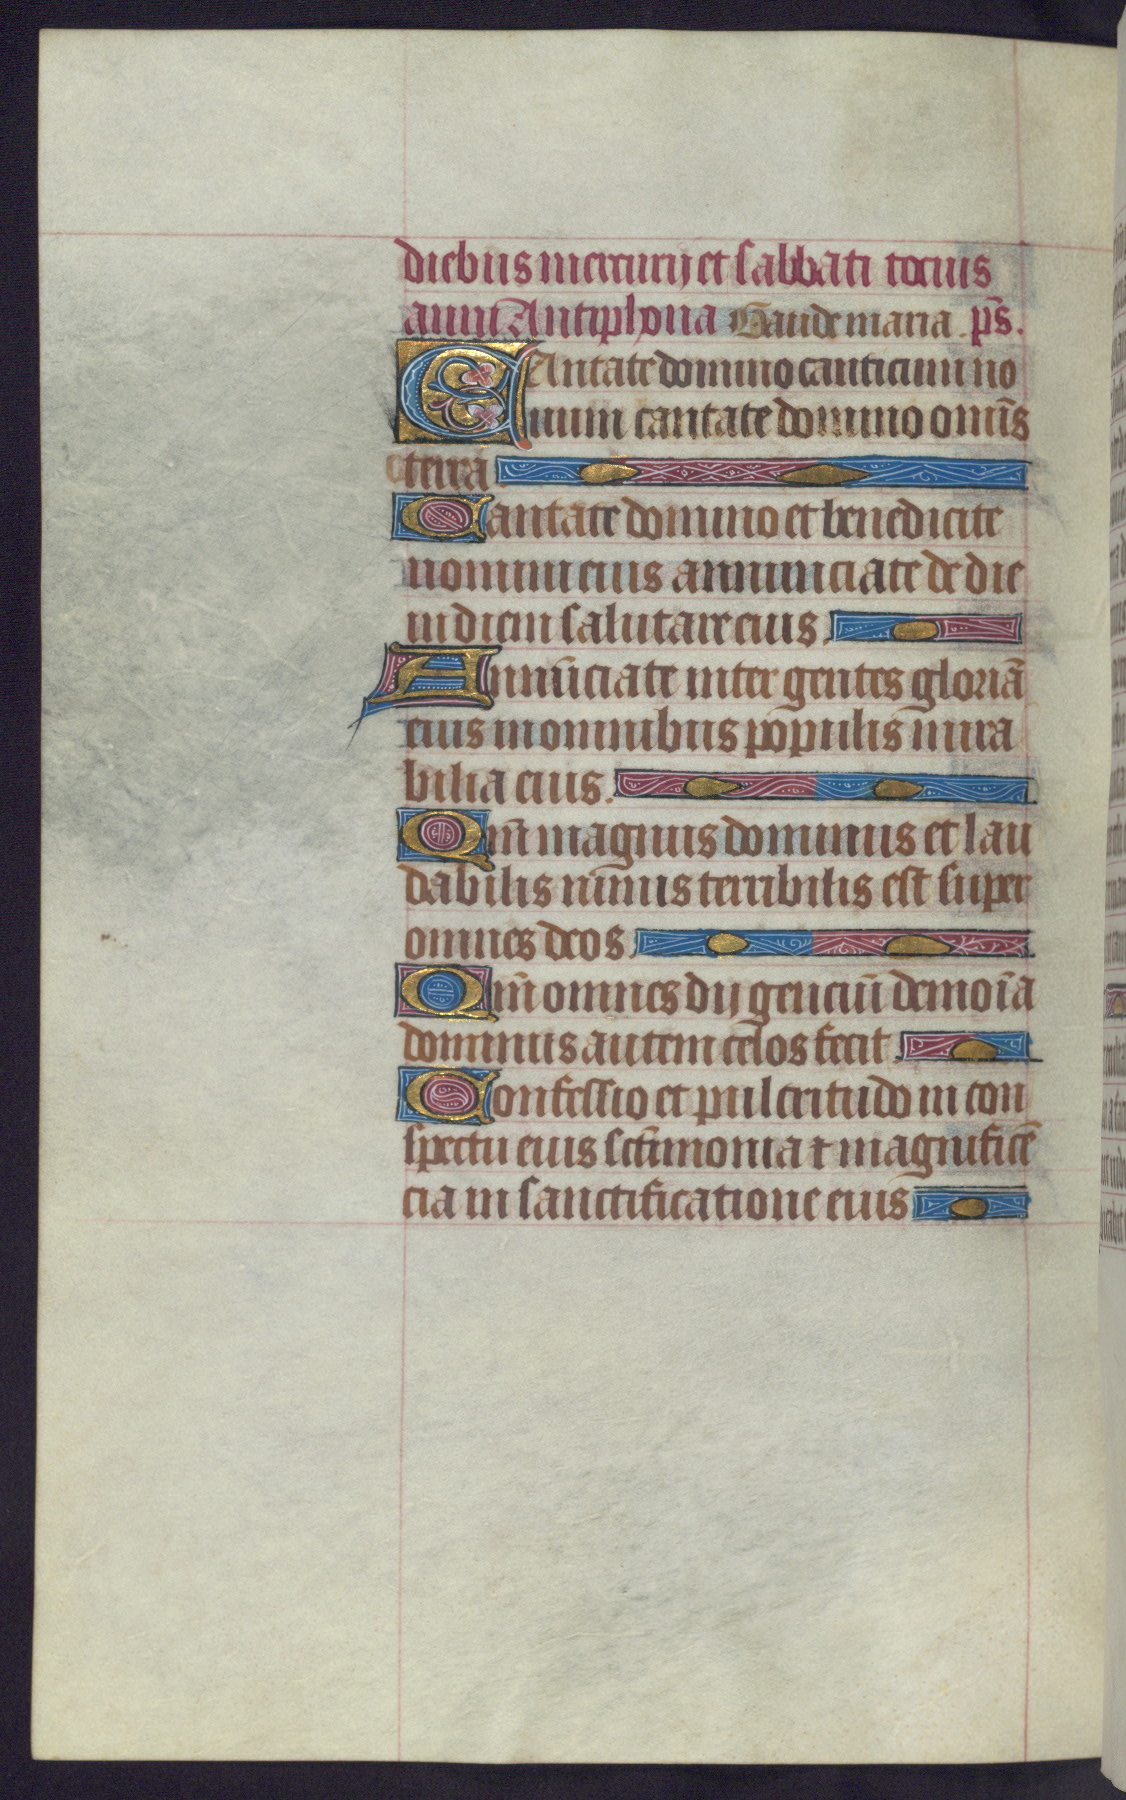 diebus mercurij et sabbati tocius
anni Antiphona Gaude maria. ps̄.
CAntate domino canticum no
uum cantate domino omīs
terra
Cantate domino et benedicite
nomini eius annunciate de die
in diem salutare eius.
Annūciate inter gentes gloriā
eius in omnibus populis mira
bilia eius.
Qm̄ magnus dominus et lau
dabilis nimis terribilis est super
omnes deos.
Qm̄ omnes dij genciū demoīa
dominus autem celos fecit.
Confessio et pulcritudo in con
spectu eius scīmonia ⁊ magnificē
cia in sanctificatione eius